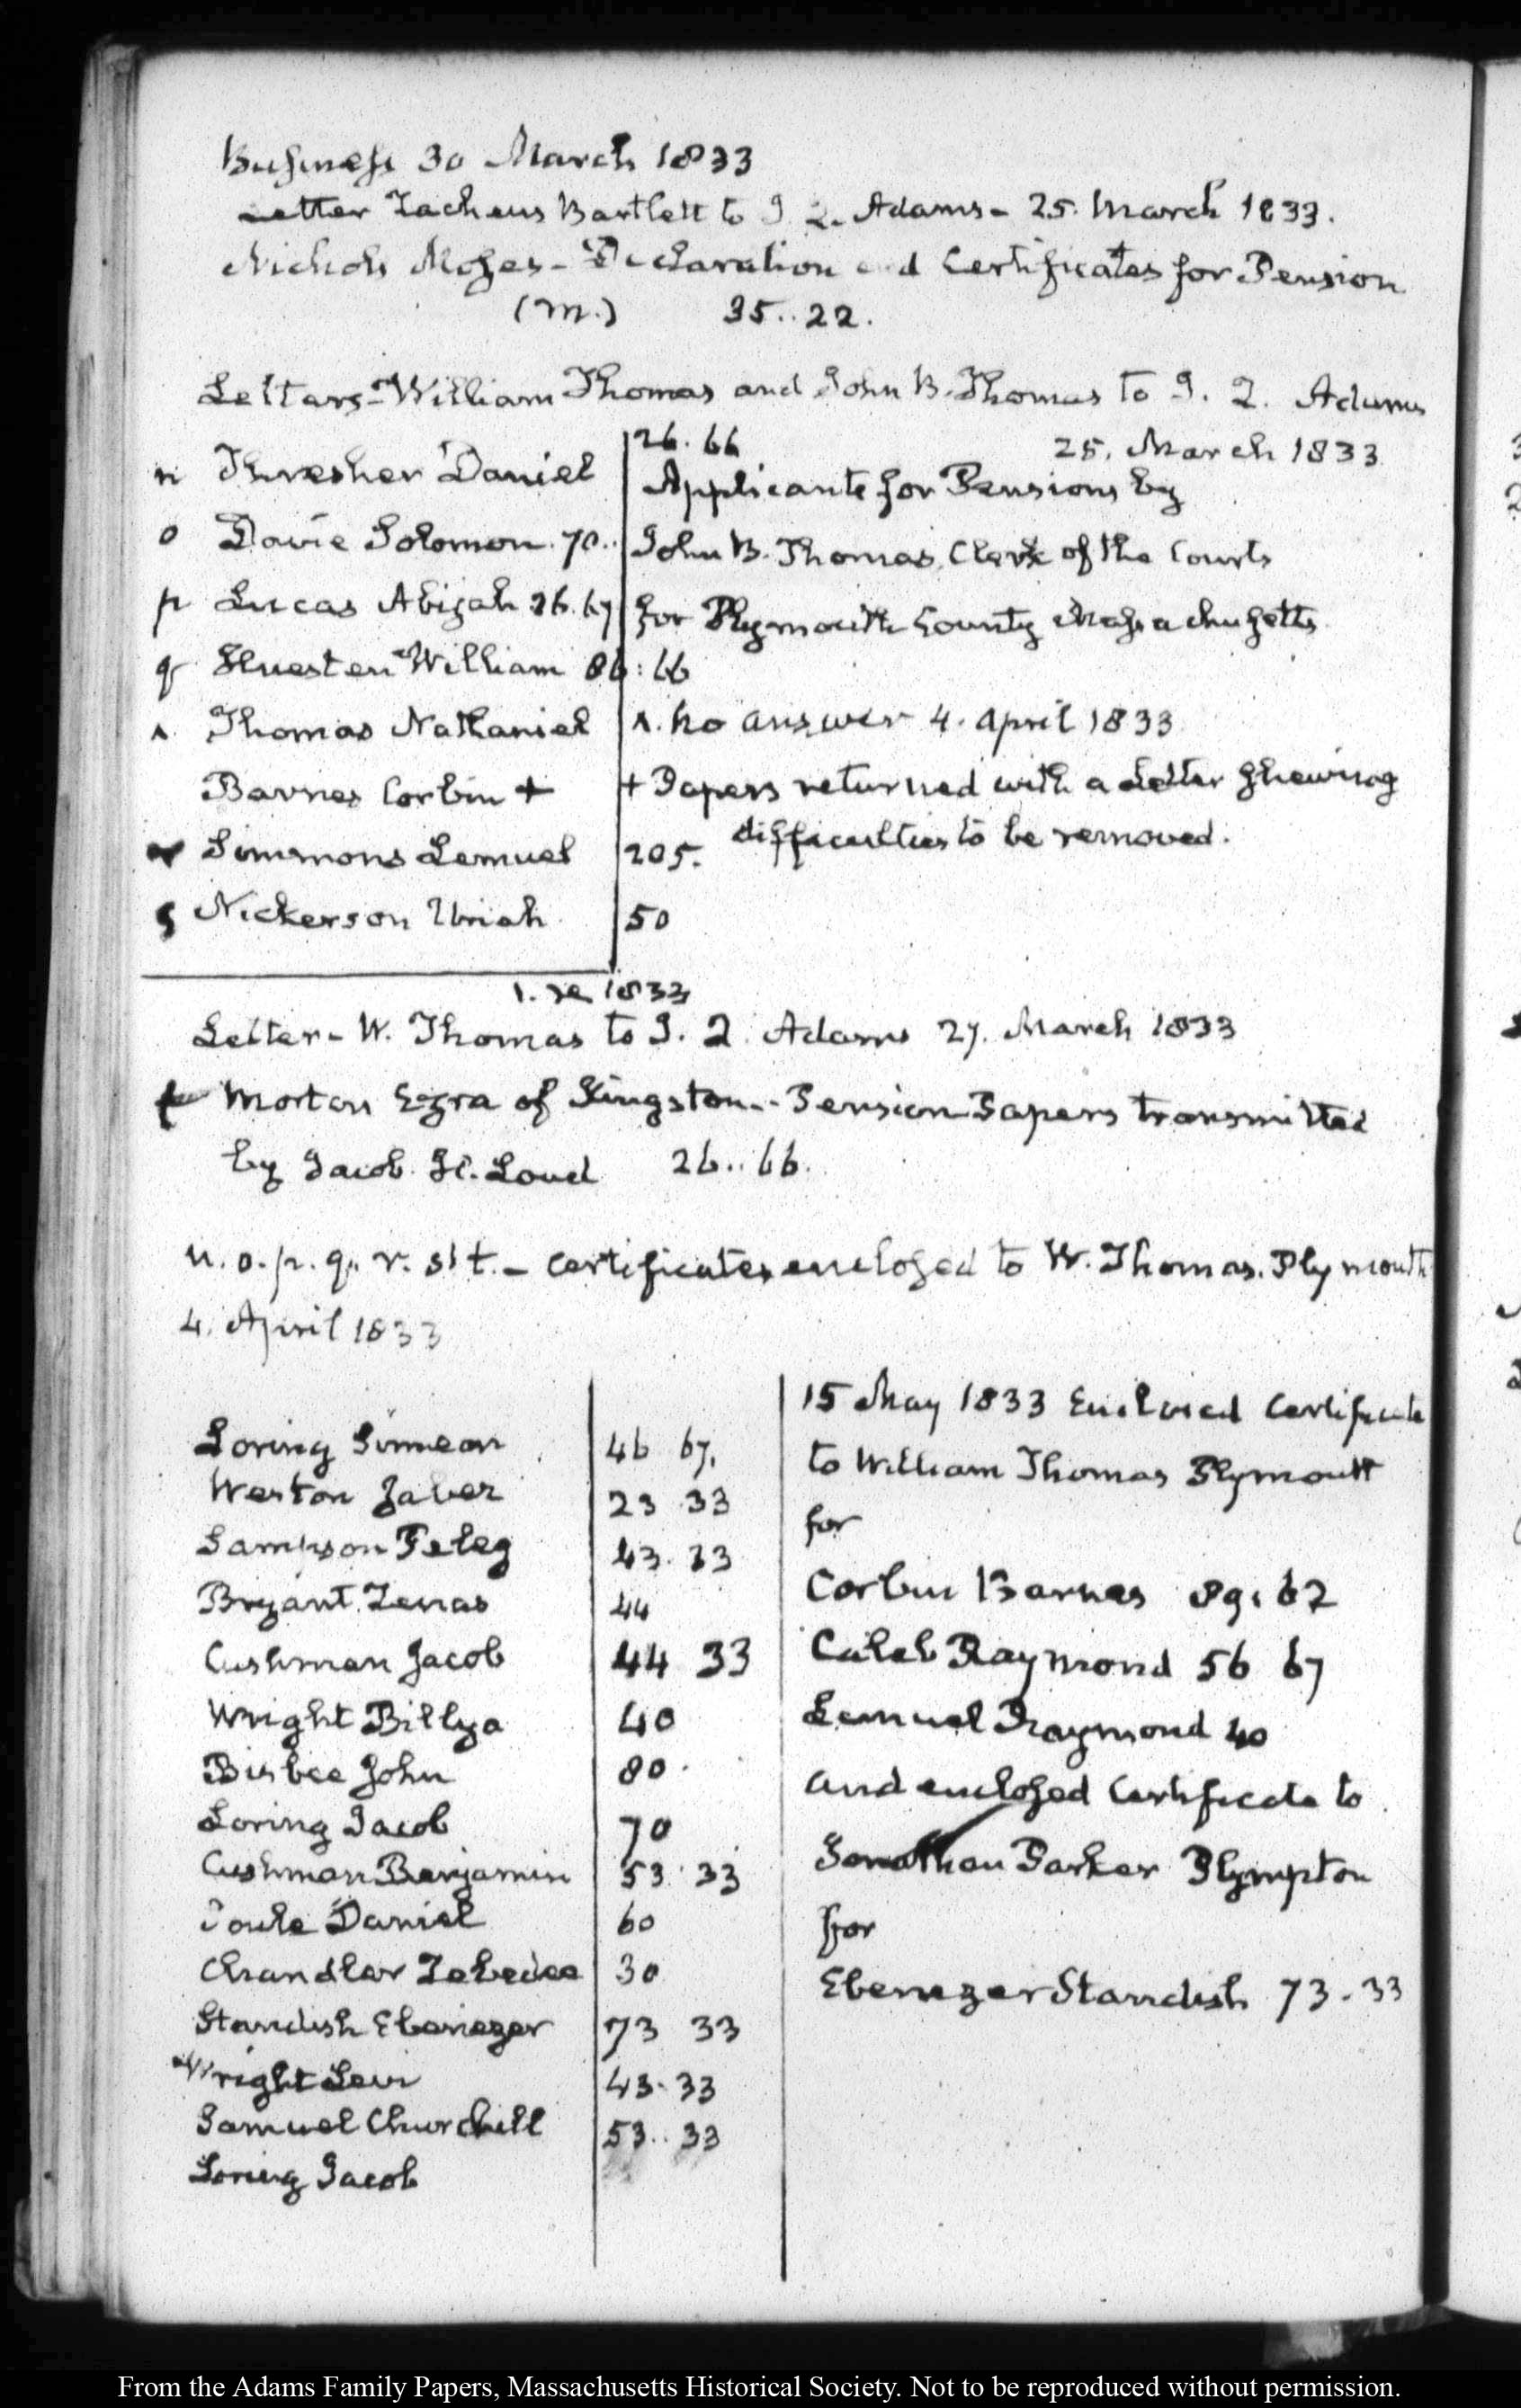 Business 30 March 1833
Letter Zacheus Bartlett to J. Q. Adams - 25. March 1833.
Nichols Moses - Declaration and Certificates for Pension
(m.) 35..22.
Letters - William Thomas and John B. Thomas to J. Q. Adams
26.66 25. March 1833
n Thresher Daniel
Applicants for Pensions by
o Davie Solomon. 70..
John B. Thomas, Clerk of the Courts
p Lucas Abijah 26.67
for Plymouth County Massachusetts.
q William 86:66
r. Thomas Nathaniel
r. no answer 4. April 1833
Barnes Corbin +
+ Papers returned with a Letter shewing
difficulties to be removed.
Simmons Lemuel 205.
s Nickerson Uriah 50
1833
Letter - W. Thomas to J. Q. Adams 27. March 1833
t Morton Ezra of Kingston - Pension Papers transmitted
by Jacob H. Loud 26..66.
n. o. p. q. r. s. t. - Certificates enclosed to W. Thomas. Plymouth
4. April 1833
Loring Simeon 46 67.
Weston Jabez 23 33
Sampson Peleg 43. 33
Bryant Zenas 44
Cushman Jacob 44 33
Wright Billya 40
Bisbee John 80.
Loring Jacob 70
Cushman Benjamin 53. 33
Soule Daniel 60
Chandler Zebedee 30
Standish Ebenezer 73 33
Wright Levi 43. 33
Samuel Churchill 53.. 33
Loring Jacob
15 May 1833 Enclosed Certificate
to William Thomas Plymouth
for
Corbin Barnes 89. 62
Caleb Raymond 56 67
Lemuel Raymond 40
and enclosed Certificate to
Jonathan Parker Plympton
for
Ebenezer Standish 73. 33
From the Adams Family Papers, Massachusetts Historical Society. Not to be reproduced without permission.